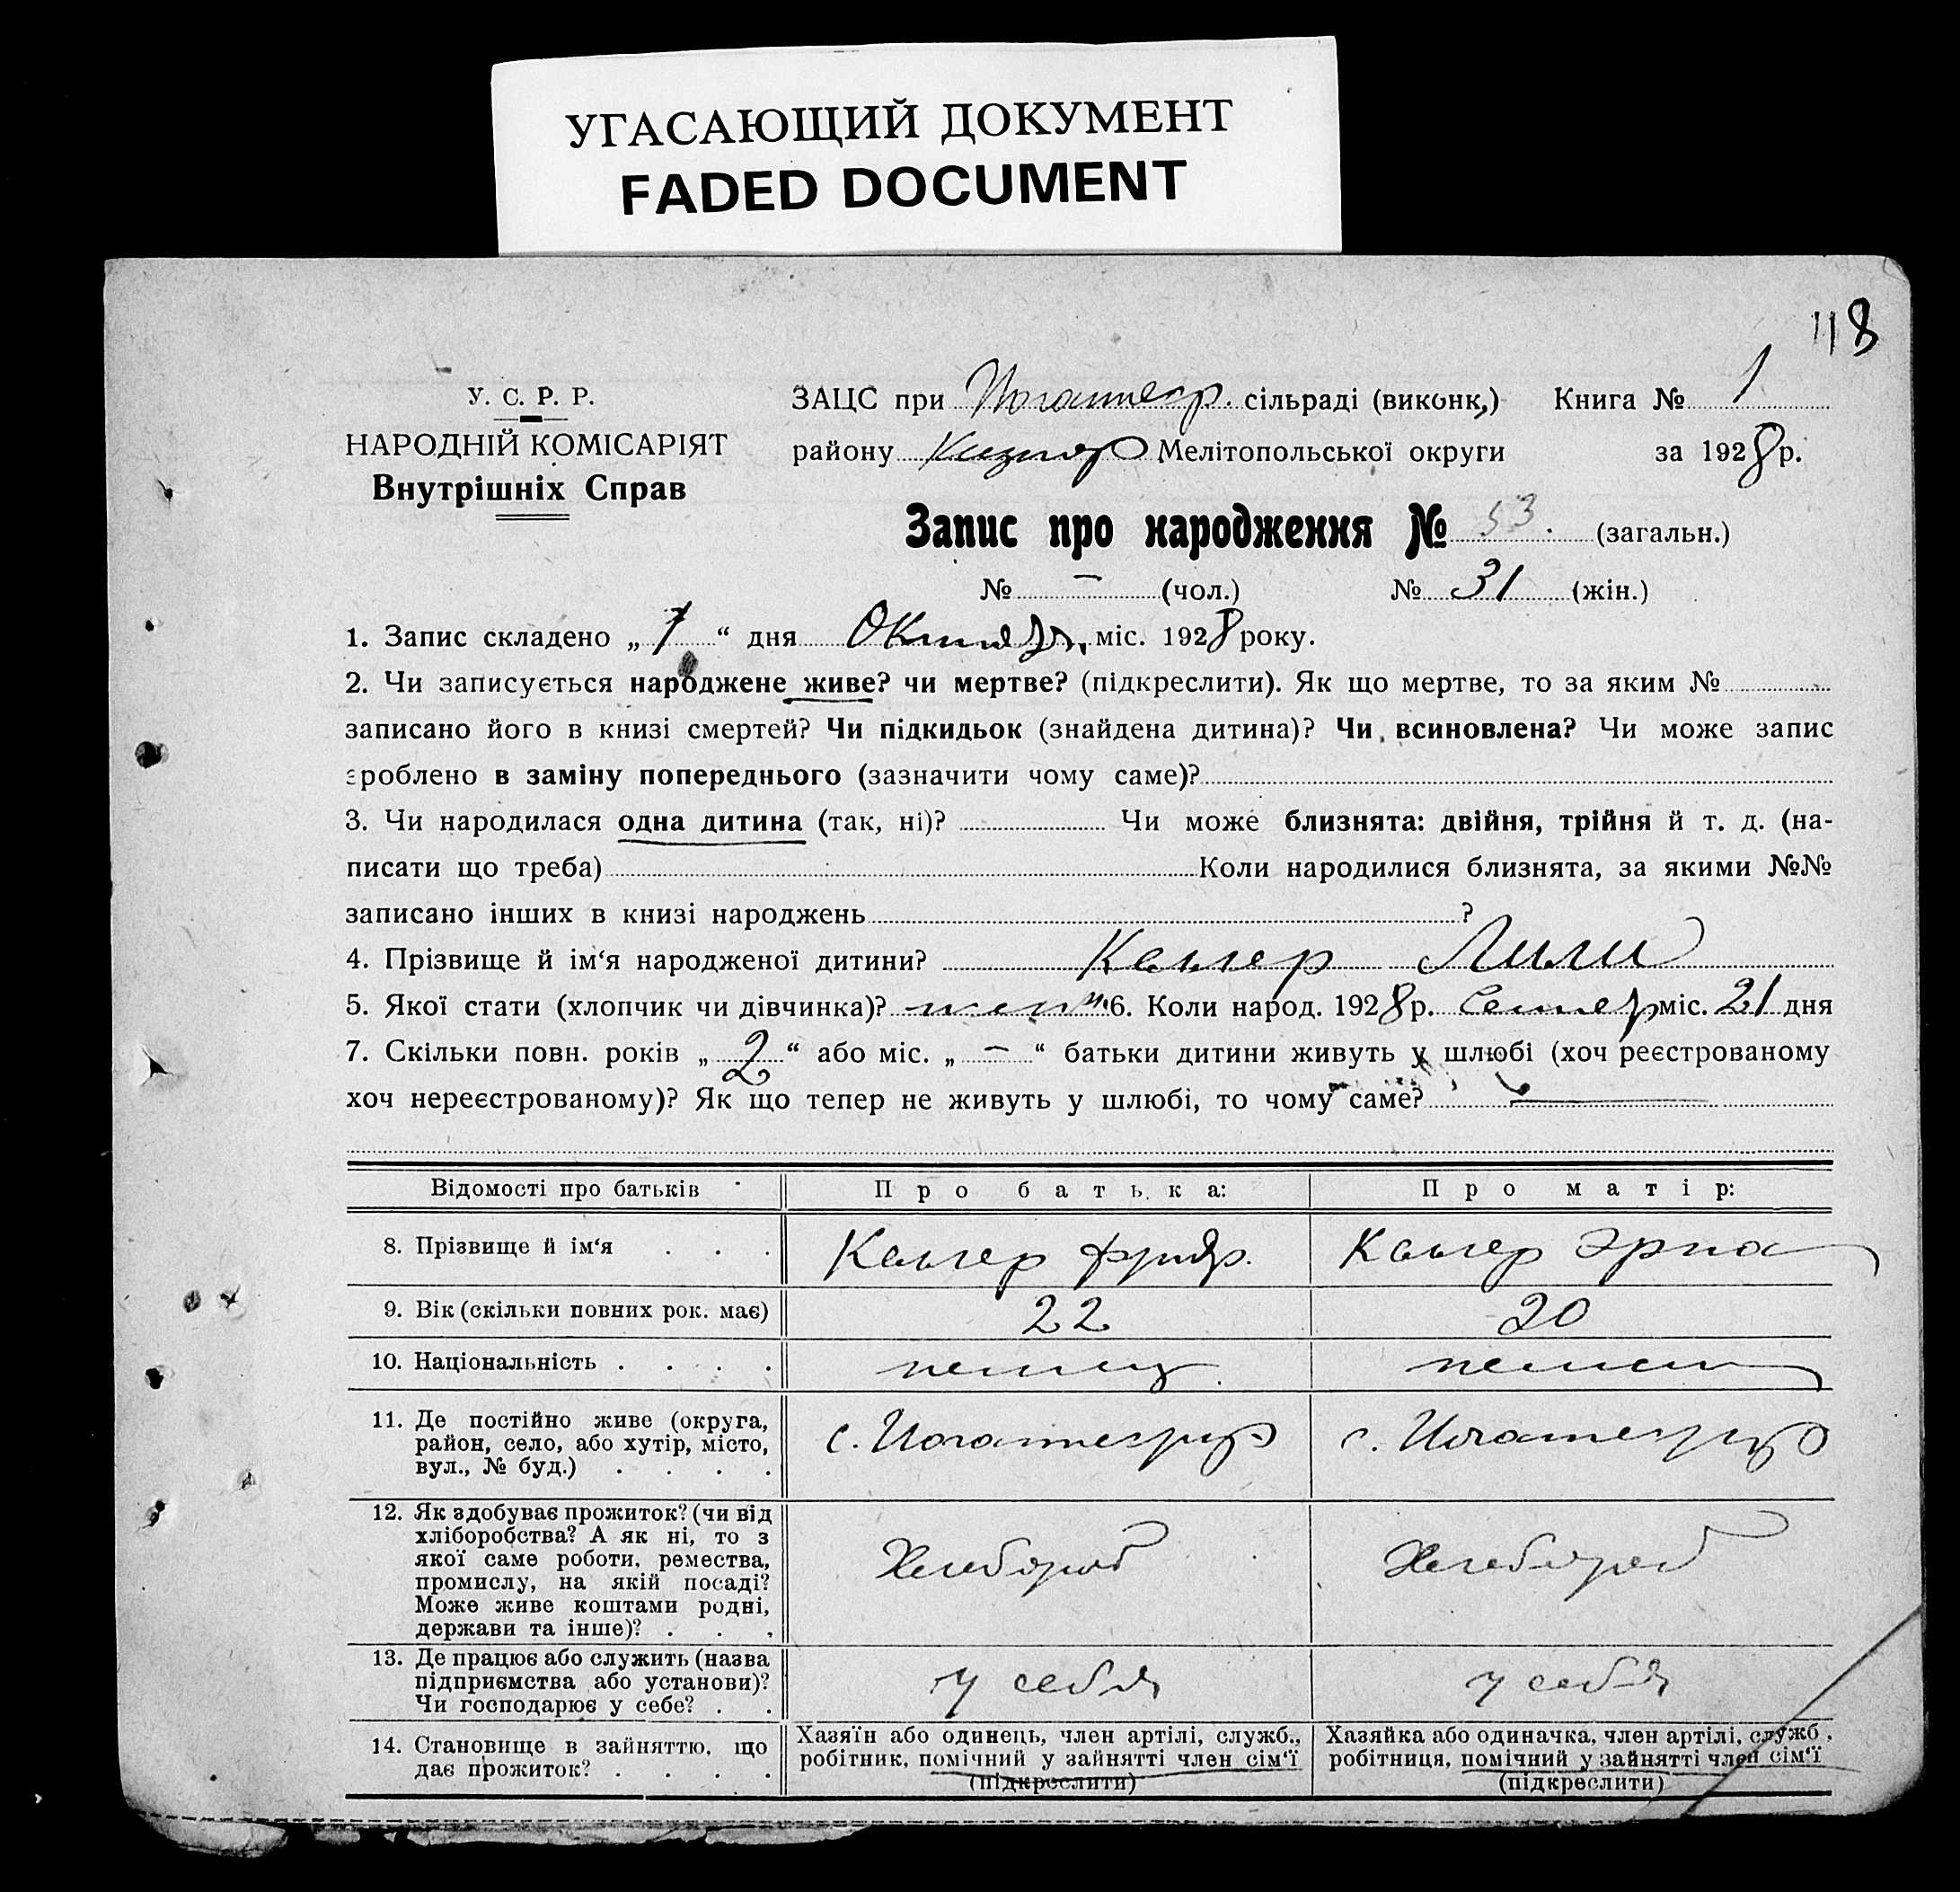 УГАСАЮЩИЙ ДОКУМЕНТ
FADED DOCUMENT
118
У. С. Р. Р.
НАРОДНІЙ КОМІСАРІЯТ
Внутрішніх Справ
ЗАЦС при сільраді (виконк,) Книга № 1
району Мелітопольської округи за 1928 р.
Запис про народження № 53. (загальн.)
№ – (чол.) № 31 (жін.)
1. Запис складено „ 1 “ дня Октябр, міс. 1928 року.
2. Чи записується народжене живе? чи мертве? (підкреслити). Як що мертве, то за яким №
записано його в книзі смертей? Чи підкидьок (знайдена дитина)? Чи всиновлена? Чи може запис
зроблено в заміну попереднього (зазначити чому саме)?
3. Чи народилася одна дитина (так, ні)? Чи може близнята: двійня, трійня й т. д. (на-
писати що треба) Коли народилися близнята, за якими №№
записано інших в книзі народжень ?
4. Прізвище й ім‘я народженої дитини? Келлер Лили
5. Якої стати (хлопчик чи дівчинка)? 6. Коли народ. 1928 р. Сентяб міс. 21 дня
7. Скільки повн. років „ 2 “ або міс. „ – “ батьки дитини живуть у шлюбі (хоч реєстрованому
хоч нереєстрованому)? Як що тепер не живуть у шлюбі, то чому саме?
Відомості про батьків Про батька: Про матір:
8. Прізвище й ім‘я . . . Келлер Фридр. Келлер Эрна
9. Вік (скільки повних рок. має) 22 20
10. Національність . . . . немец
11. Де постійно живе (округа,
район, село, або хутір, місто,
вул., № буд.) . . . .
12. Як здобуває прожиток? (чи від
хліборобства? А як ні, то з
якої саме роботи, ремества,
промислу, на якій посаді?
Може живе коштами родні,
держави та інше)? . . .
Хлебороб Хлебороб
13. Де працює або служить (назва
підприємства або установи)?
Чи господарює у себе? . .
у себя у себя
14. Становище в зайняттю, що
дає прожиток? . . . .
Хазяїн або одинець, член артілі, служб.,
робітник, помічний у зайнятті член сім‘ї
(підкреслити)
Хазяйка або одиначка, член артілі, служб.,
робітниця, помічний у зайнятті член сім‘ї
(підкреслити)